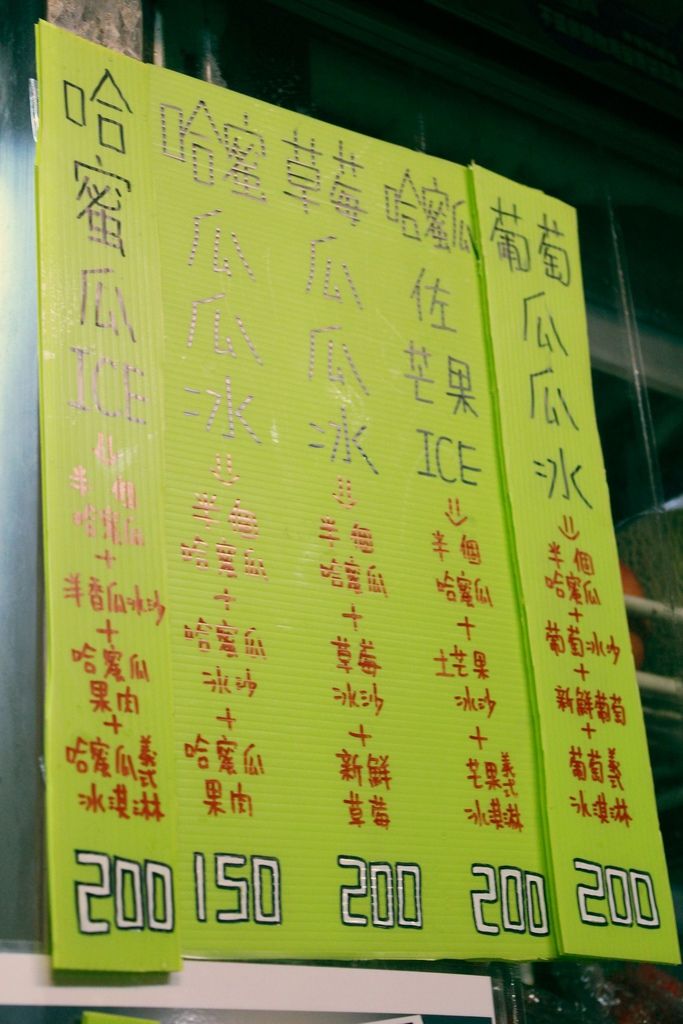 哈
蜜
瓜
ICE
⇓
半個
哈蜜瓜
+
羊香瓜冰沙
+
哈蜜瓜
果肉
+
哈蜜瓜義式
冰淇淋
200
哈蜜
瓜
瓜
冰
⇓
半個
哈蜜瓜
+
哈蜜瓜
冰沙
+
哈蜜瓜
果肉
150
草莓
瓜
瓜
冰
⇓
半個
哈蜜瓜
+
草莓
冰沙
+
新鮮
草莓
200
哈蜜瓜
佐
芒果
ICE
⇓
半個
哈蜜瓜
+
土芒果
冰沙
+
芒果義式
冰淇淋
200
葡萄
瓜
瓜
冰
⇓
半個
哈蜜瓜
+
葡萄冰沙
+
新鮮葡萄
+
葡萄義式
冰淇淋
200